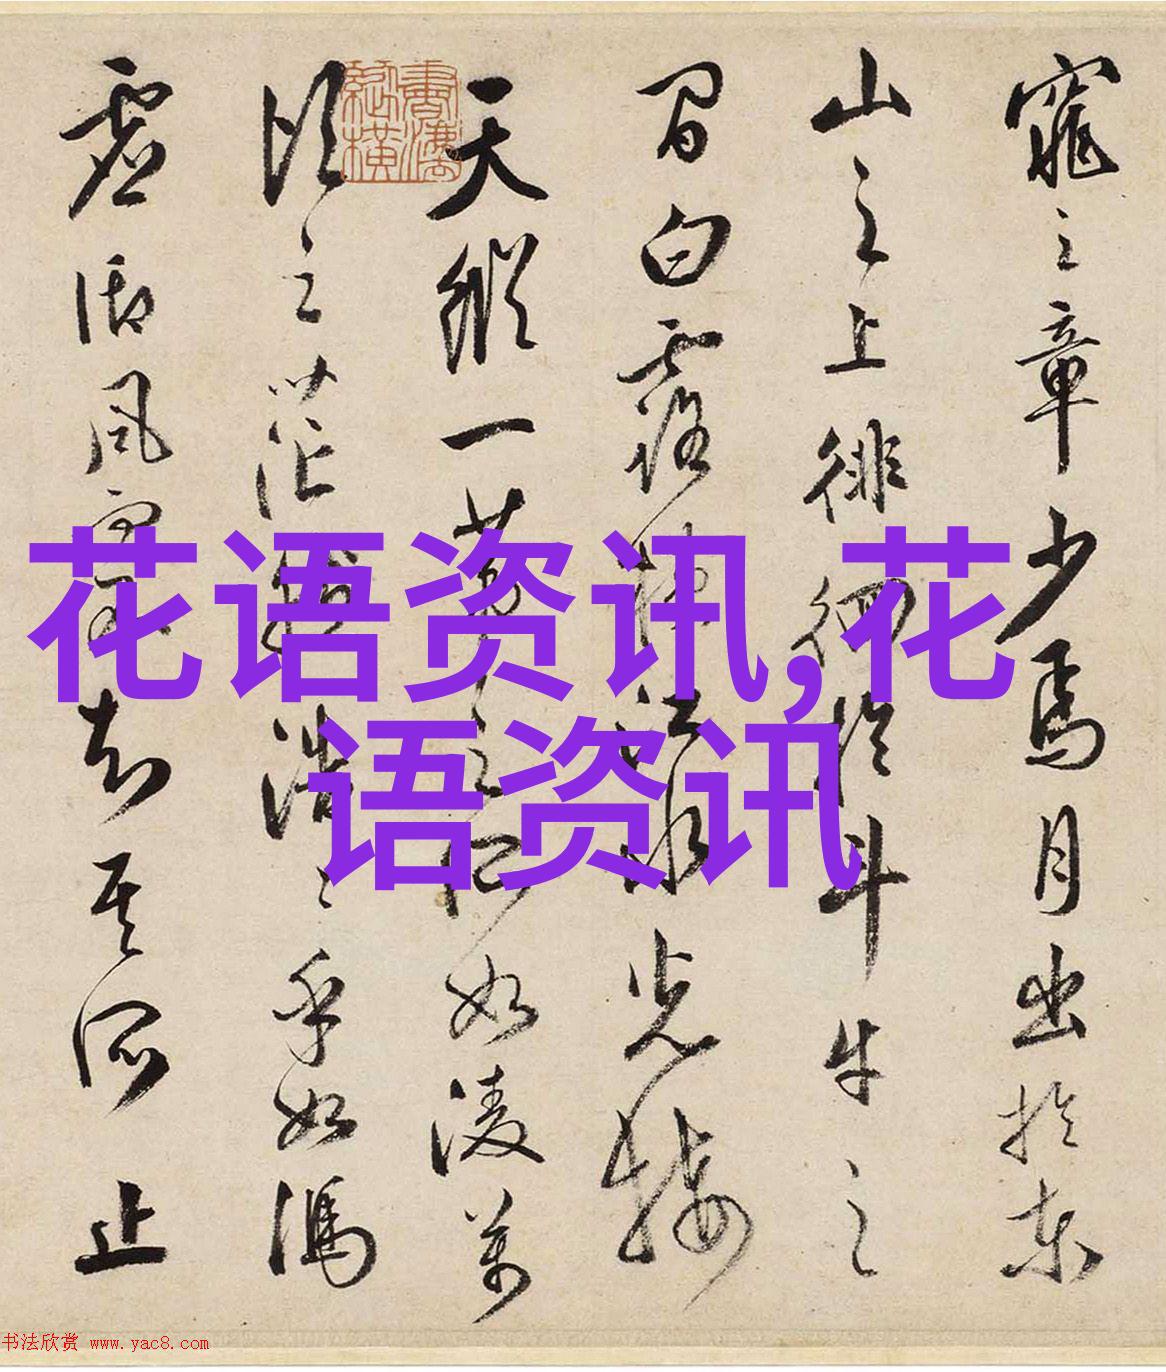 窕之章少焉月出於東
山之上徘徊於斗牛之
間白露橫江水光接
天縱一葦之所如凌萬
頃之茫然浩〻乎如馮
虛御風而不知其所止
花语资讯,花
语资讯
书法欣赏 www.yac8.com